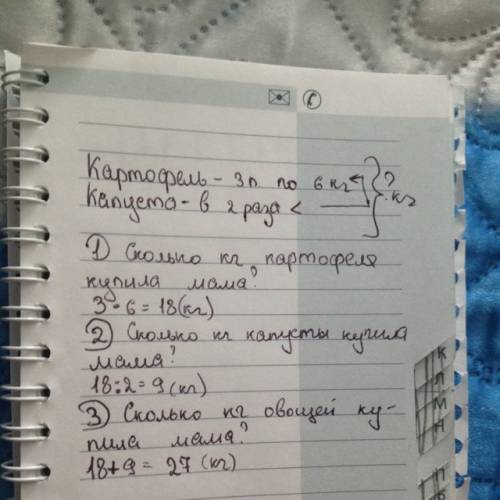 Картофель - 3п. по 6 кг } ? кг
Капуста - в 2 раза <
1) Сколько кг картофеля
купила мама?
3·6 = 18(кг)
2) Сколько кг капусты купила
мама?
18:2 = 9 (кг)
3) Сколько кг овощей ку-
пила мама?
18+9 = 27 (кг)